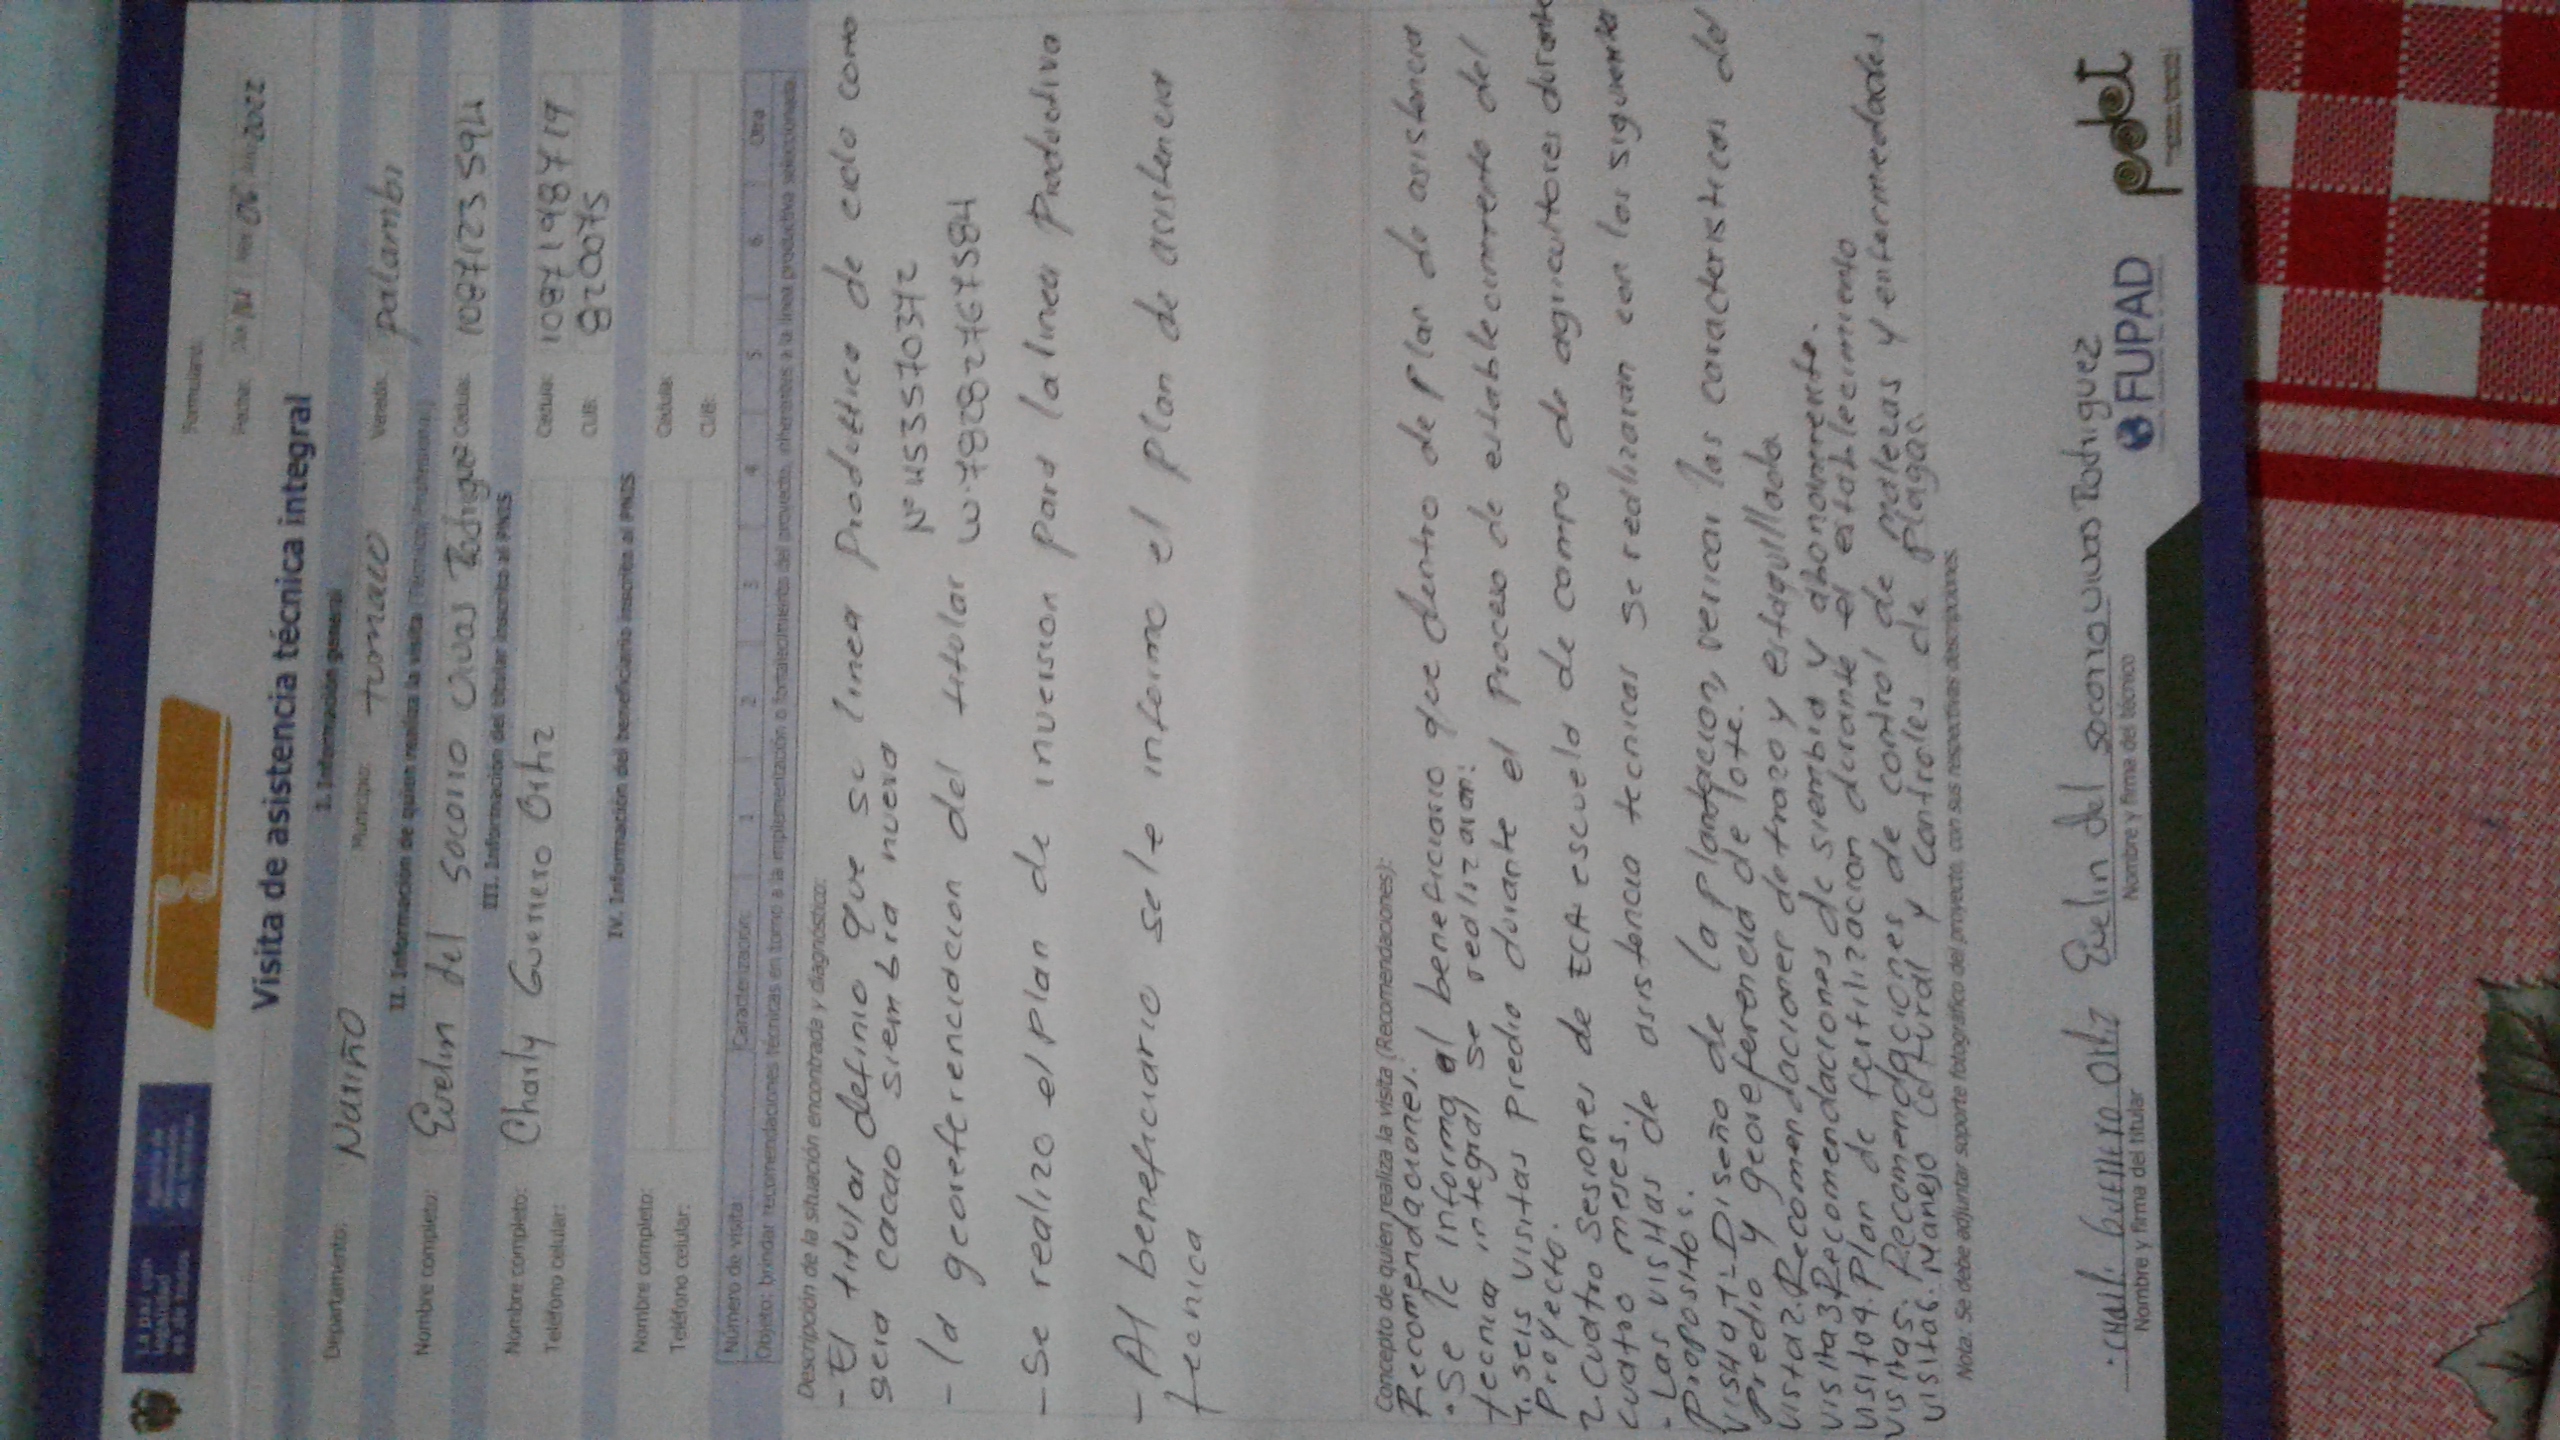 Formulario:
Fecha: 06 2022
Visita de asistencia técnica integral
I. Información general
Departamento: Nariño Municipio: tumaco Vereda: palambi
II. Información de quien realiza la visita (Técnico/Profesional)
Nombre completo: Evelin del socorro vivas Rodriguez Cedula: 1087123594
III. Información del titular inscrito al PNIS
Nombre completo: Charly Guerrero Ortiz Cedula: 1087198719
Teléfono celular: CUB: 820075
IV. Información del beneficiario inscrito al PNIS
Nombre completo: Cedula:
Teléfono celular: CUB:
Número de visita Caracterización 1 2 3 4 5 6 Otra
Objeto: brindar recomendaciones técnicas en torno a la implementación o fortalecimiento del proyecto, inherentes a la línea productiva seleccionada
Descripción de la situación encontrada y diagnóstico:
- El titular definio que su linea productiva de ciclo corto
sera cacao siembra nueva N° 1.453570372
- la georeferenciacion del titular W-78.82767584
- Se realizo el plan de inversion para la linea productiva
- Al beneficiario se le informo el plan de asistencia
tecnica
Concepto de quien realiza la visita (Recomendaciones):
Recomendaciones.
• Se le informa al beneficiario que dentro de Plan de asistencia
tecnica integral se realizaran:
1. seis visitas predio durante el proceso de establecimiento del
Proyecto.
2. Cuatro sesiones de ECA escuela de campo de agricultores durante
cuatro meses.
- Las visitas de asistencia tecnicas se realizaran con los siguientes
Propositos.
visita 1- Diseño de la plantacion, verificar las caracteristicas del
Predio y georeferencia de lote.
visita 2. Recomendaciones de trazo y estaquillado
visita 3 Recomendaciones de siembra y abonamiento.
visita 4. Plan de fertilizacion durante el establecimiento
visita 5. Recomendaciones de control de malezas y enfermedades
visita 6. Manejo cultural y controles de plagas.
Nota: Se debe adjuntar soporte fotográfico del proyecto, con sus respectivas descripciones
Charli Guerrero Ortiz Evelin del socorro vivas Rodriguez
Nombre y firma del titular Nombre y firma del técnico
FUPAD pdet